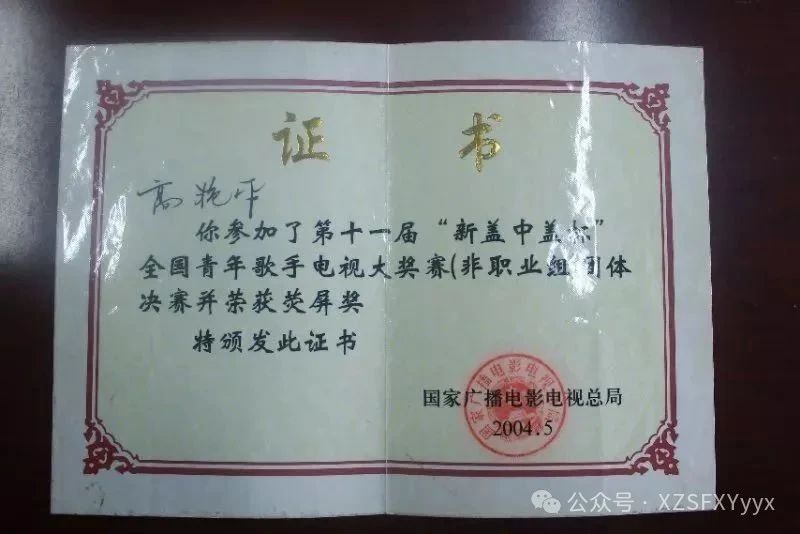 证书
高艳平
你参加了第十一届“新盖中盖杯”
全国青年歌手电视大奖赛(非职业组)团体
决赛并荣获荧屏奖
特颁发此证书
国家广播电影电视总局
2004.5
国家广播电影电视总局
公众号·XZSFXYyyx